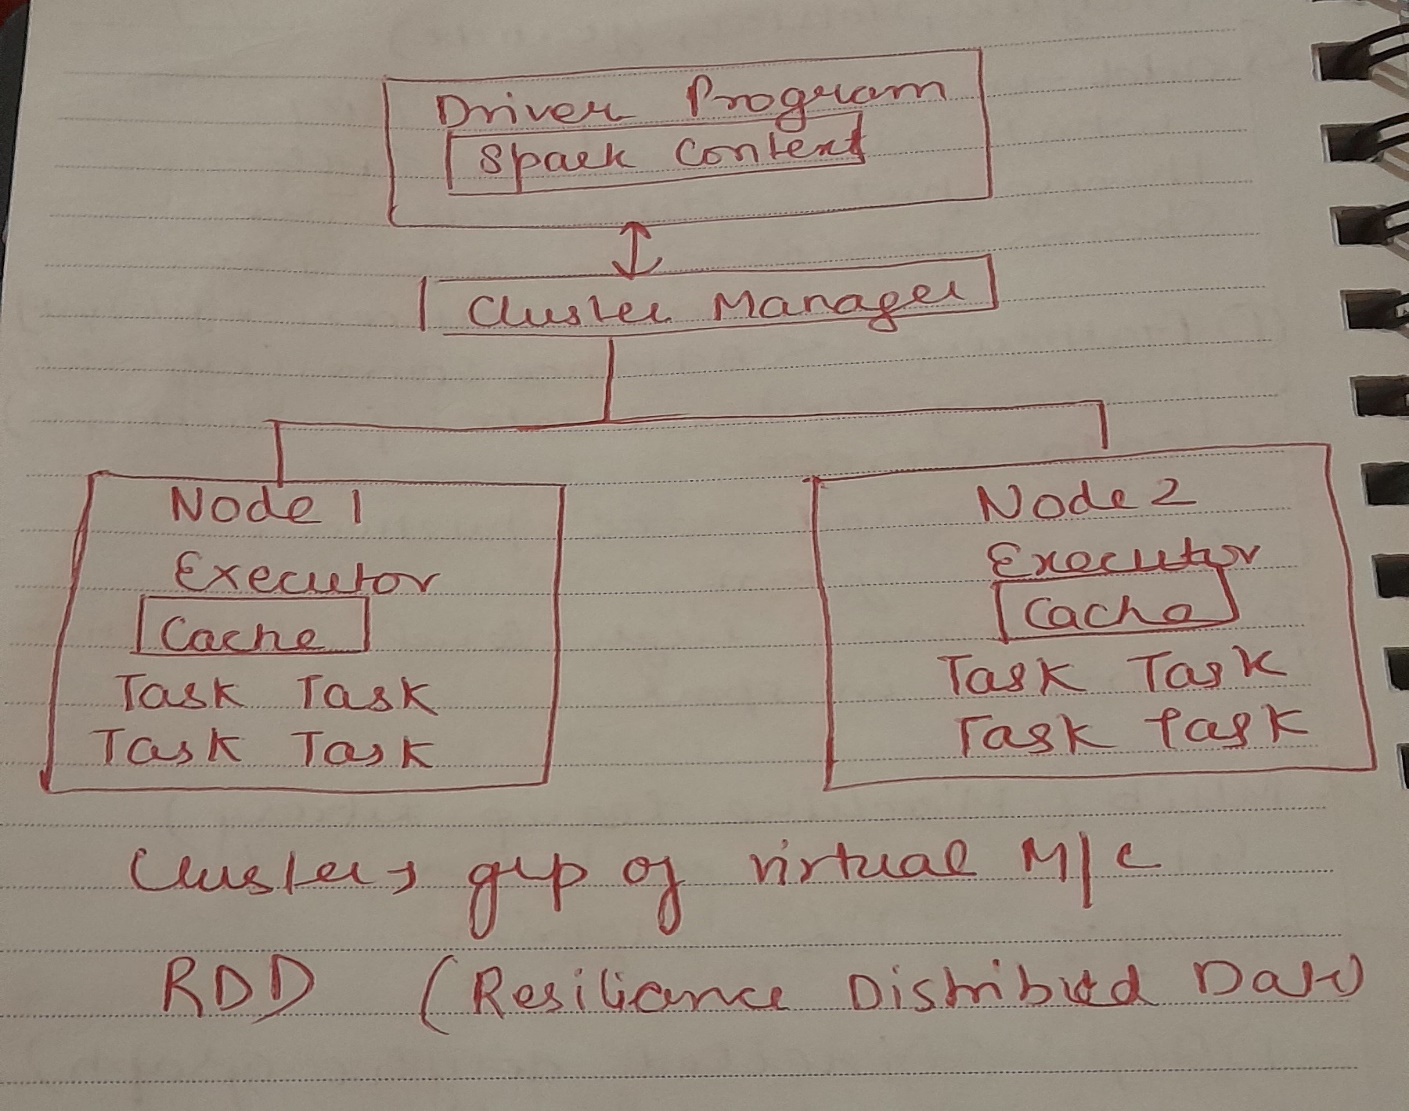 Driver Program
Spark Context
Cluster Manager
Node 1
Executor
Cache
Task Task
Task Task
Node 2
Executor
Cache
Task Task
Task Task
Clusters grp of virtual M/c
RDD (Resiliance Distributed Data)